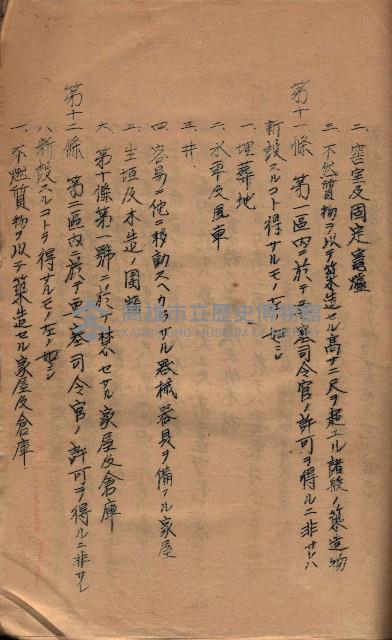 二、窖室及固定竈爐
三、不燃質物ヲ以テ築造セル高サ二尺ヲ超エル諸般ノ築造物
第十一條 第一區内ニ於テ要塞司令官ノ許可ヲ得ルニ非サレハ
新設スルコト得サルモノ左ノ如シ
一、埋葬地
二、水車及風車
三、井
四、容易ニ他ニ移動スヘカラサル器械器具ヲ備フル家屋
五、生垣及木造ノ圍
六、第十條第一號ニ於テ禁セサル家屋及倉庫
第十二條 第二區内ニ於テ要塞司令官ノ許可ヲ得ルニ非サレ
ハ新設スルコトヲ得サルモノ左ノ如シ
一、不燃質物ヲ以テ築造セル家屋及倉庫
高雄市立歷史博物館
KAOHSIUNG MUSEUM OF HISTORY